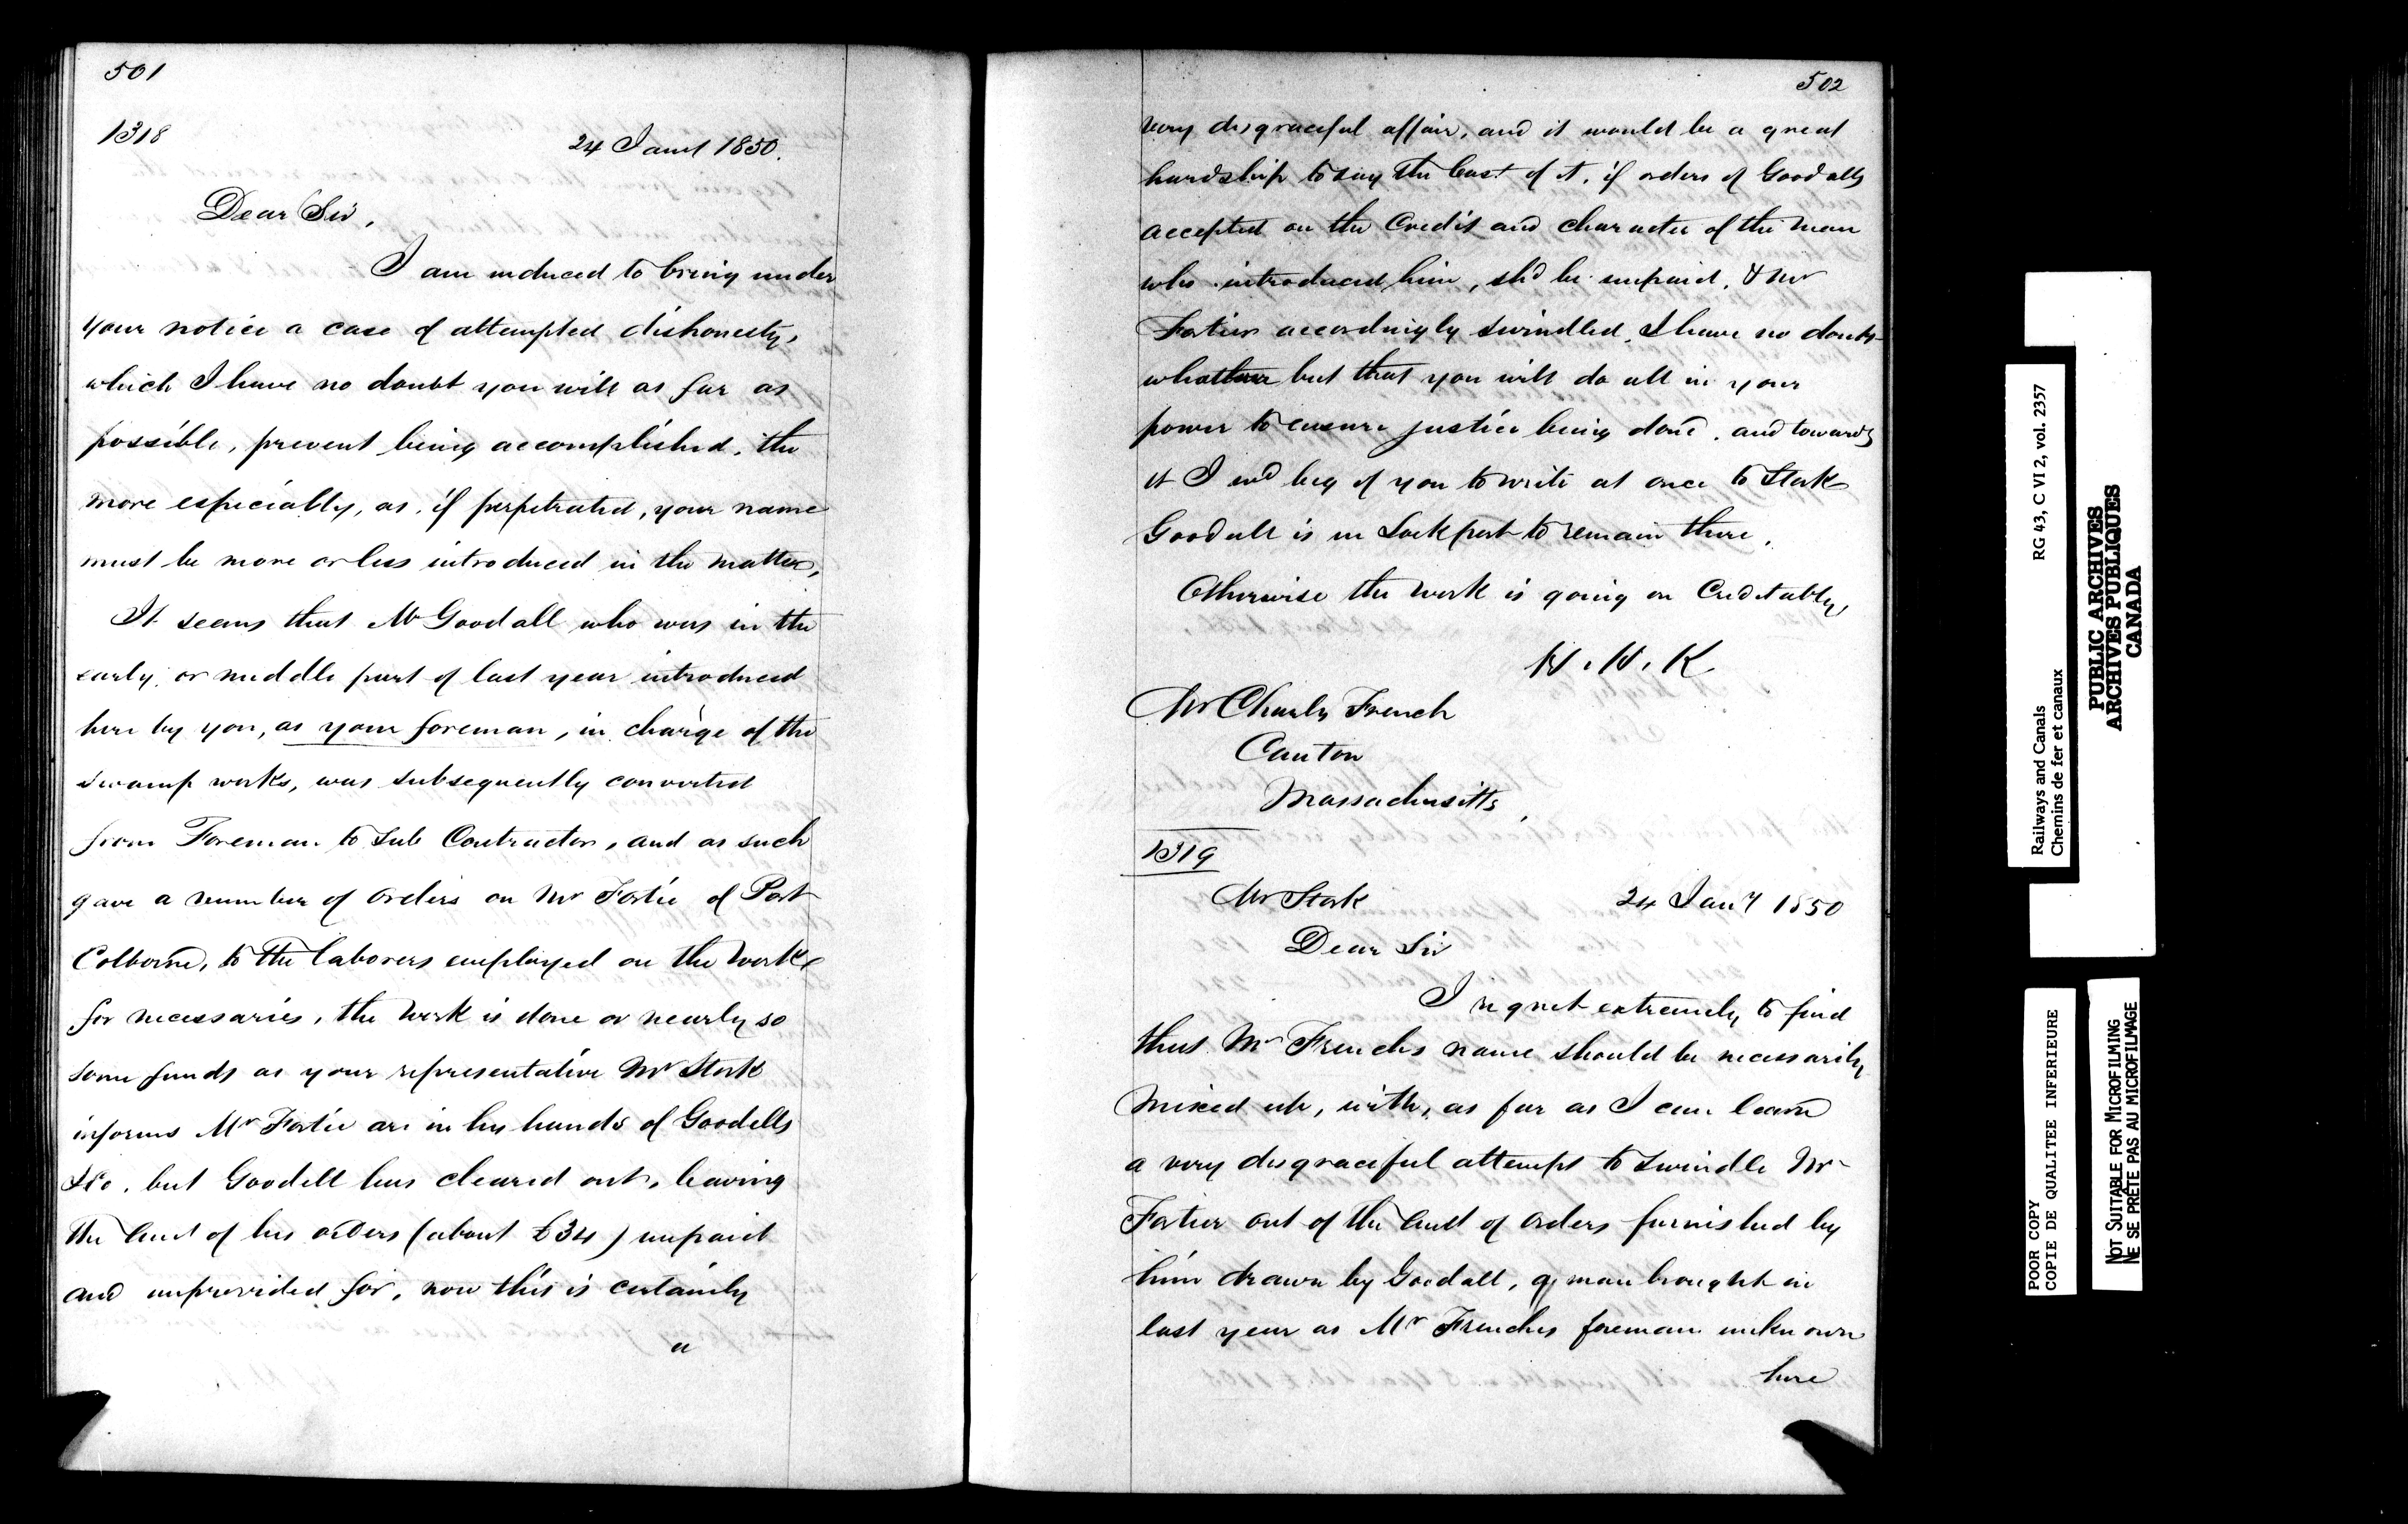 501
1318
24 Jany 1850.
Dear Sir,
I am induced to bring under
your notice a case of attempted dishonesty,
which I have no doubt you will as far as
possible, prevent being accomplished, the
more especially, as, if perpetrated, your name
must be more or less introduced in the matter,
It seems that Mr Goodall who was in the
early, or middle part of last year introduced
here by you, as your foreman, in charge of the
Swamp works, was subsequently converted
from Foreman to Sub Contractor, and as such
gave a number of orders on Mr Fortier of Port
Colborne, to the laborers employed on the works
for necessaries, the work is done or nearly so
some funds as your representative Mr Stork
informs Mr Fortier are in his hands of Goodells
&c. but Goodell has cleared out, leaving
the amt of his orders (about £34) unpaid
and unprovided for, now this is certainly
a
502
very disgraceful affair, and it would be a great
hardship to say the least of it, if orders of Goodalls
accepted on the Credit and character of the man
who introduced him, shd be unpaid, & Mr
Fortier accordingly swindled, I have no doubt
whatever but that you will do all in your
power to ensure justice being done, and towards
it I wd beg of you to write at once to Stork
Goodall is in Lockport to remain there,
Otherwise the work is going on Creditably,
H. H. K
Mr Charles French
Canton
Massachusitts,
1319
Mr Stork 24 Jany 1850
Dear Sir
I regret extremely to find
that Mr Frenchs name should be necessarily
mixed up, with, as far as I can learn
a very disgraceful attempt to swindle Mr
Fortier out of the amt of orders furnished by
him drawn by Goodall, a man brought in
last year as Mr Frenches foreman unknown
here
Railways and Canals RG 43, C VI 2, vol. 2357
Chemins de fer et canaux
PUBLIC ARCHIVES
ARCHIVES PUBLIQUES
CANADA
POOR COPY
COPIE DE QUALITEE INFERIEURE
NOT SUITABLE FOR MICROFILMING
NE SE PRÊTE PAS AU MICROFILMAGE